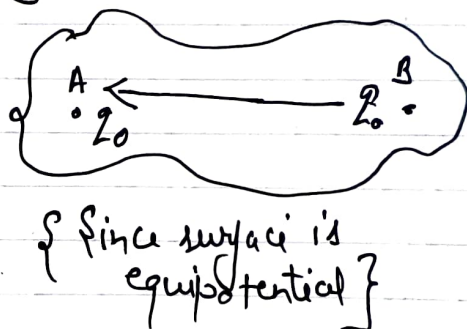 A B
q₀ q₀
{ Since surface is
equipotential }